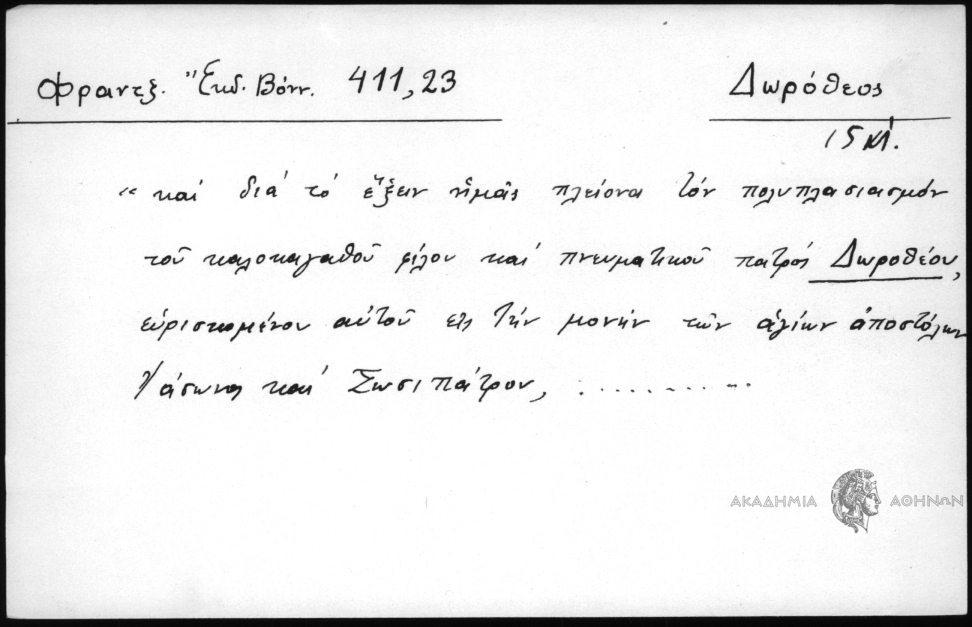 Φραντζ. Ἔκδ. Βόνν. 411,23
Δωρόθεος
15 κ!.
“ καί διά τό ἕξειν ἡμᾶς πλείονα τόν πολυπλασιασμόν
τοῦ καλοκαγαθοῦ φίλου καί πνευματικοῦ πατρός Δωροθέου,
εὑρισκομένου αὐτοῦ εἰς τήν μονήν τῶν ἁγίων ἀποστόλων
Ἰάσωνος καί Σωσιπάτρου, ..........
ΑΚΑΔΗΜΙΑ ΑΘΗΝΩΝ